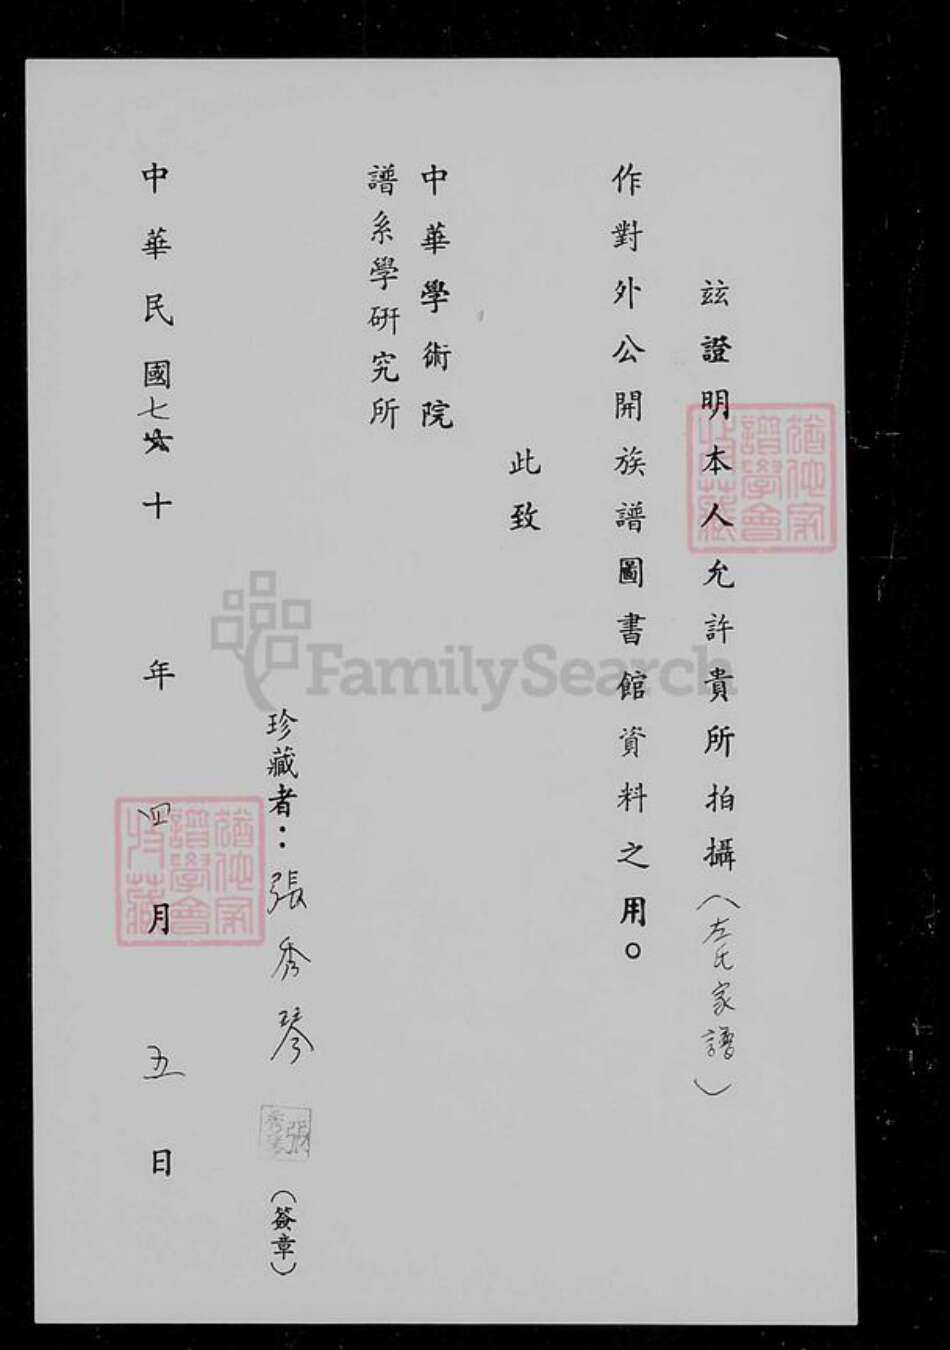 茲證明本人允許貴所拍攝(左氏家譜)
作對外公開族譜圖書館資料之用。
此致
中華學術院
譜系學研究所
珍藏者：張秀琴
(簽章)
中華民國七十年四月五日
FamilySearch